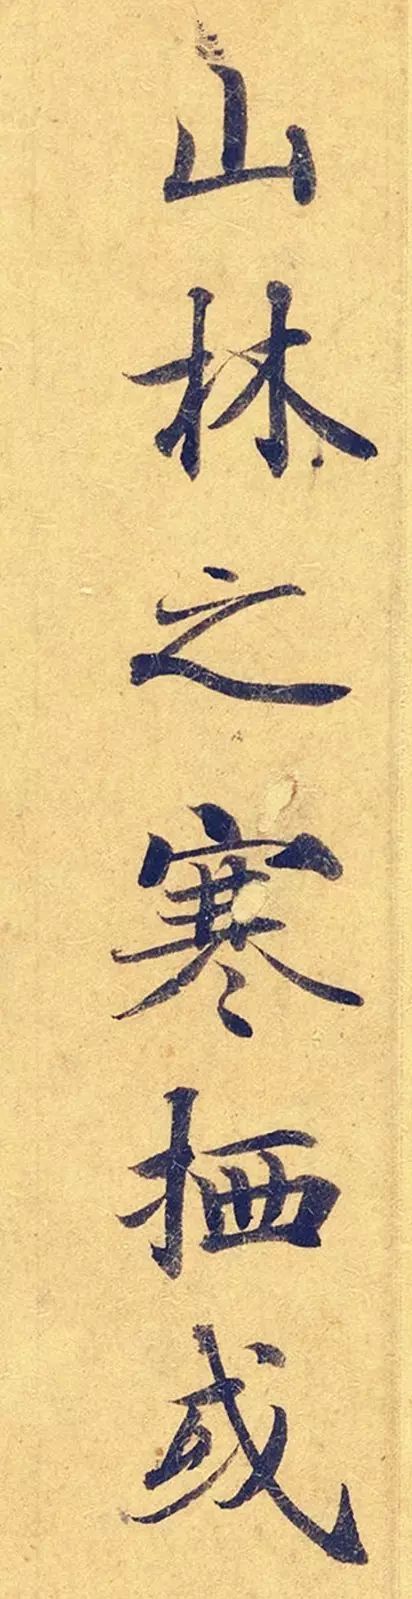 山林之寒栖或